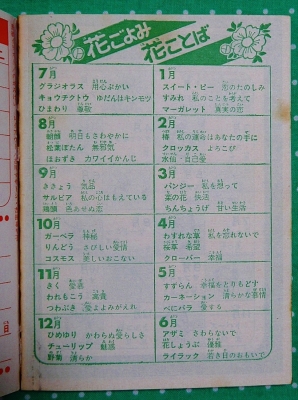 花ごよみ
花ことば
1月
スイート・ピー 恋のたのしみ
すみれ 私のことを考えて
マーガレット 真実の恋
2月
椿 私の運命はあなたの手に
クロッカス よろこび
水仙 自己愛
3月
パンジー 私を想って
菜の花 快活
ちんちょうげ 甘い生活
4月
わすれな草 私を忘れないで
芽 希望
クローバー 幸福
5月
すずらん 幸福をとりもどす
カーネーション 清らかな愛情
べにばら 愛する
6月
アザミ さわらないで
花しょうぶ 優雅
ライラック 若き日のおもいで
7月
グラジオラス 用心ぶかい
キョウチクトウ ゆだんはキンモツ
ひまわり
8月
朝顔 明日もさわやかに
松葉ぼたん 無邪気
ほおずき カワイイかんじ
9月
ききょう 気品
サルビア 私の心はもえている
鶏頭 色あせぬ恋
10月
ガーベラ 神秘
りんどう さびしい愛情
コスモス 美しいおこない
11月
きく
われもこう
つわぶき 愛よよみがえれ
12月
ひめゆり かわらぬ愛らしさ
チューリップ 魅惑
野菊 清らか